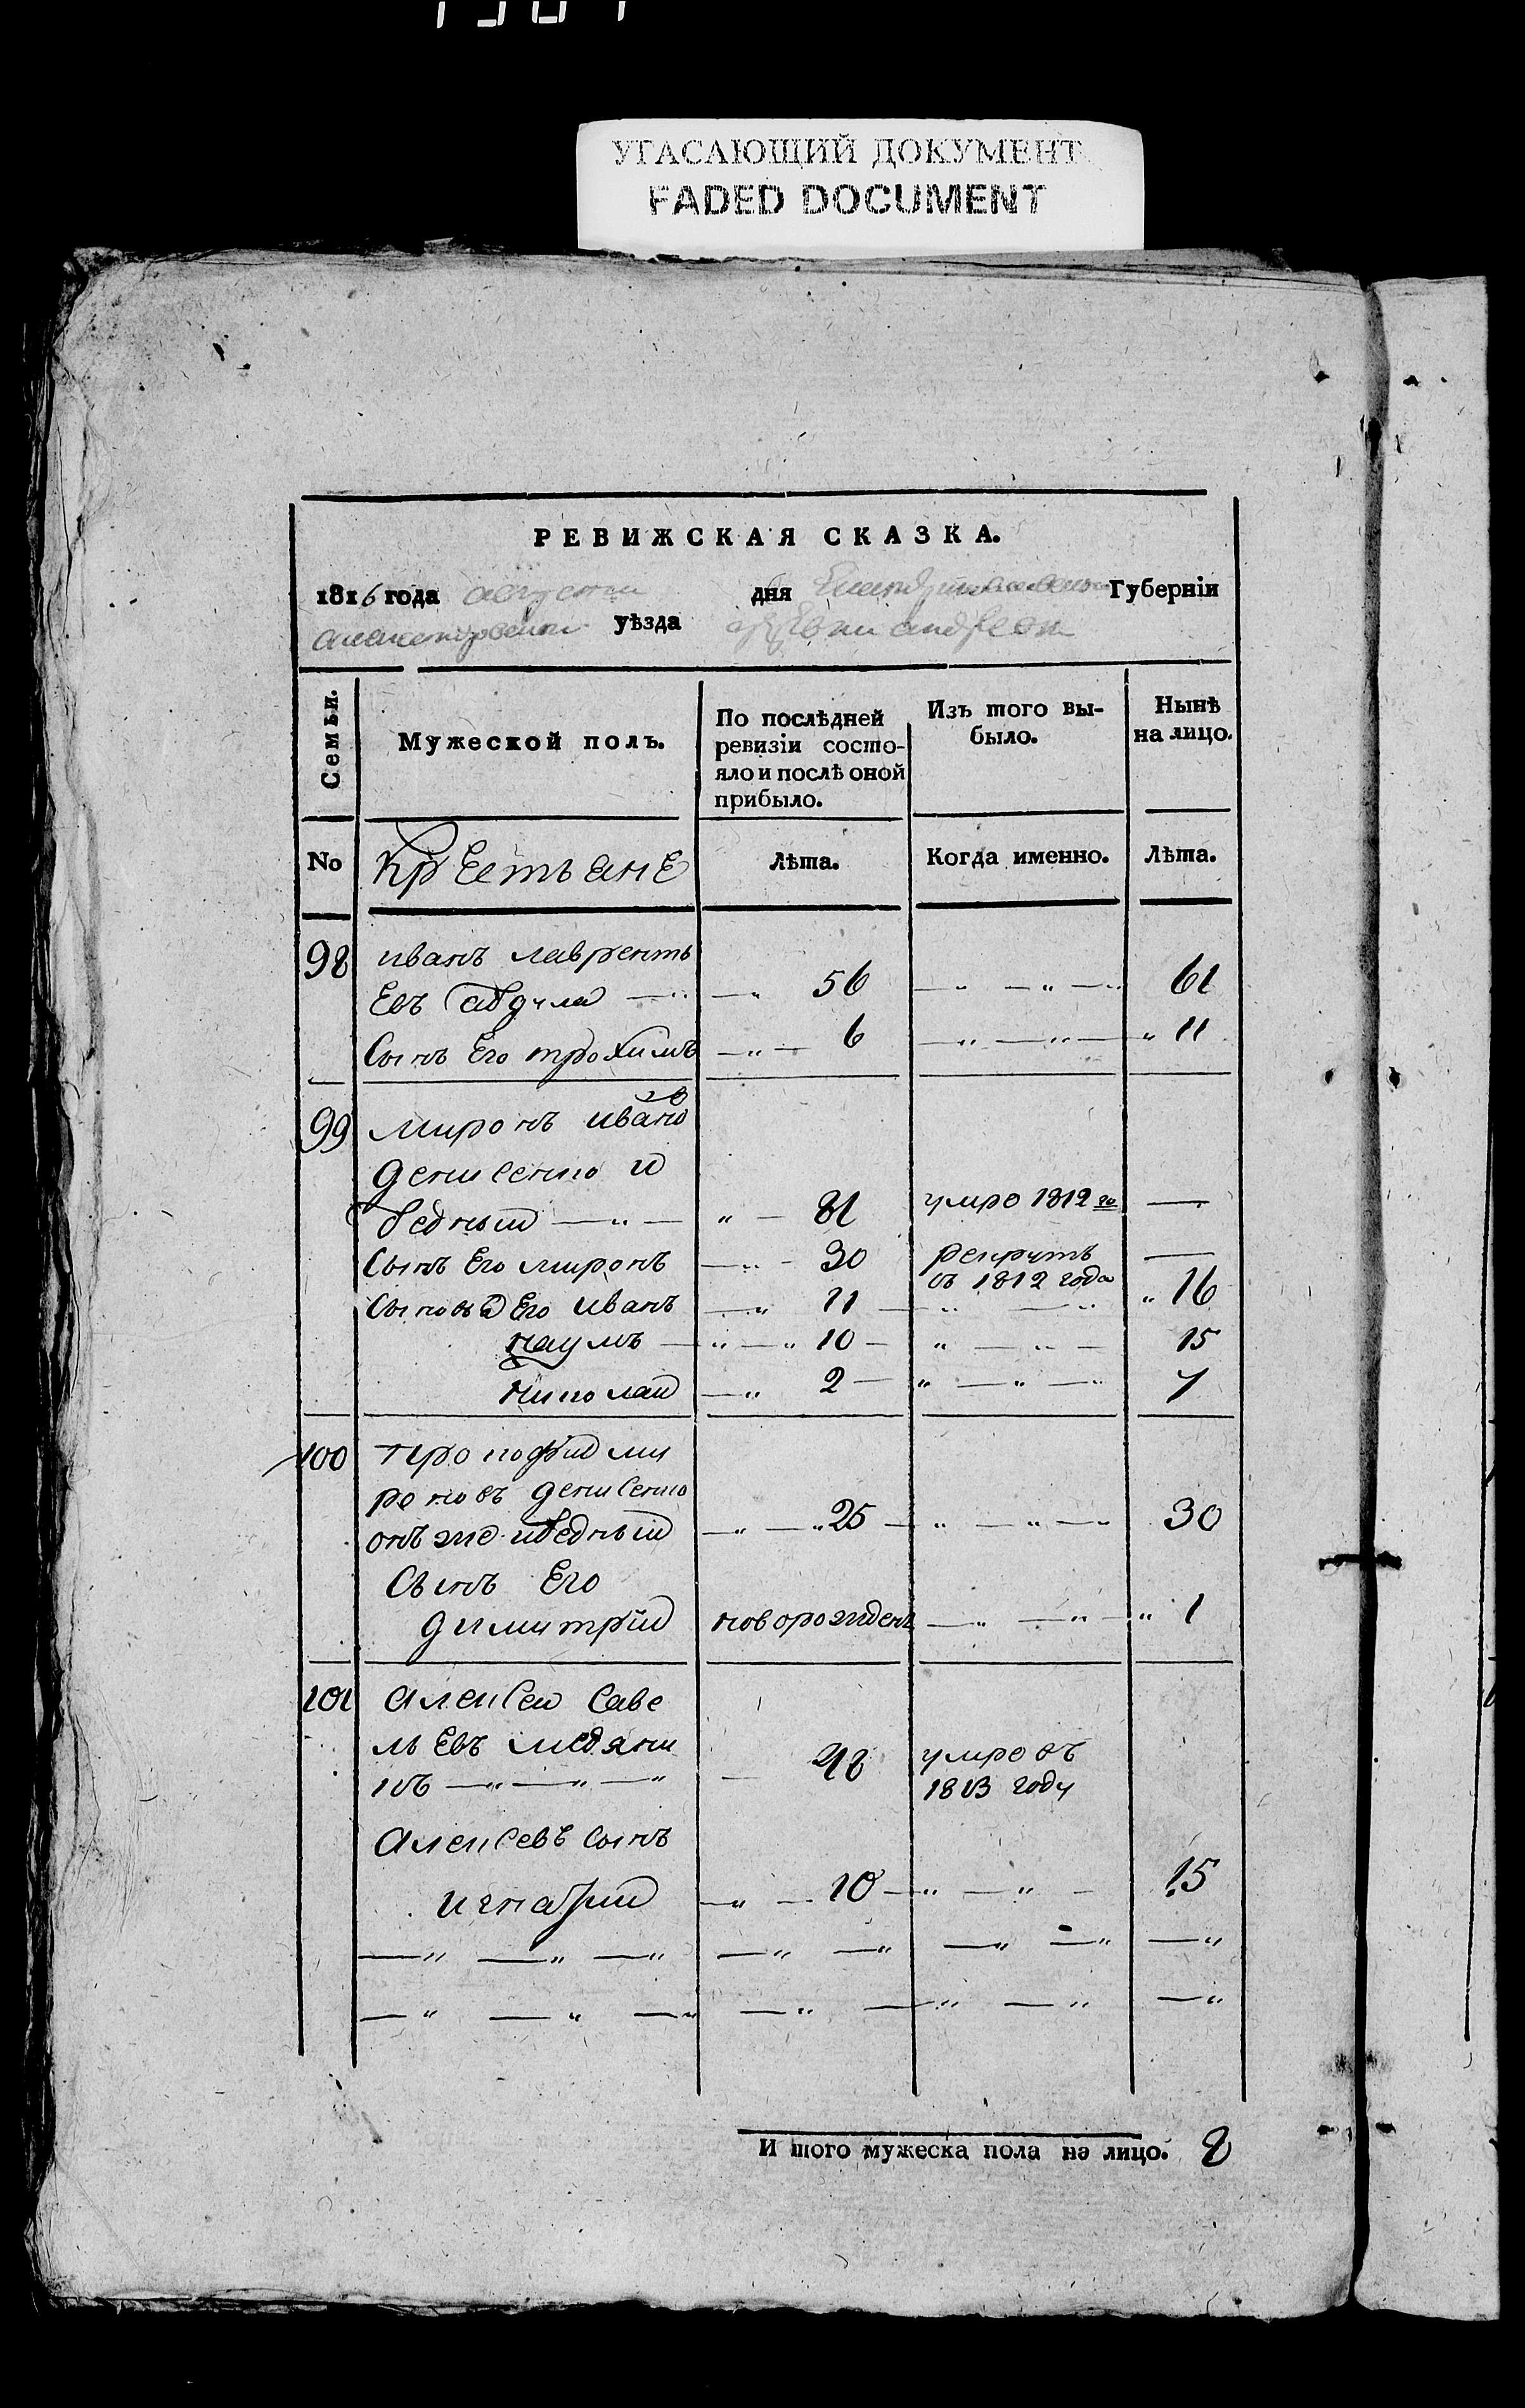 УГАСАЮЩИЙ ДОКУМЕНТ
FADED DOCUMENT
РЕВИЖСКАЯ СКАЗКА.
1816 года августа дня Екатеринославской Губерніи
александровскаго уѣзда
Семьи.
Мужеской полъ.
По послѣдней ревизіи состо-
яло и послѣ оной прибыло.
Изъ того вы-
было.
Нынѣ
на лицо.
No крестьяне Лѣта. Когда именно. Лѣта.
98 иванъ лавренть
евъ 56 61
Сынъ Его трохимъ 6 11
99 миронъ ивано
денисенко и
бедный 81 умре 1812 го —
Сынъ Его миронъ 30 рекрутъ —
съ 1812 года
Сыновья Его иванъ 11 16
наумъ 10 15
николай 2 7
100 прокофий ми
роновъ денисенко
онъ же и бедный 25 30
Сынъ Его
димитрий новорожденъ 1
101 алексей саве
льевъ медяни
къ 48 умре въ
1813 году
алексевъ сынъ
игнатий 10 15
И того мужеска пола на лицо. 8